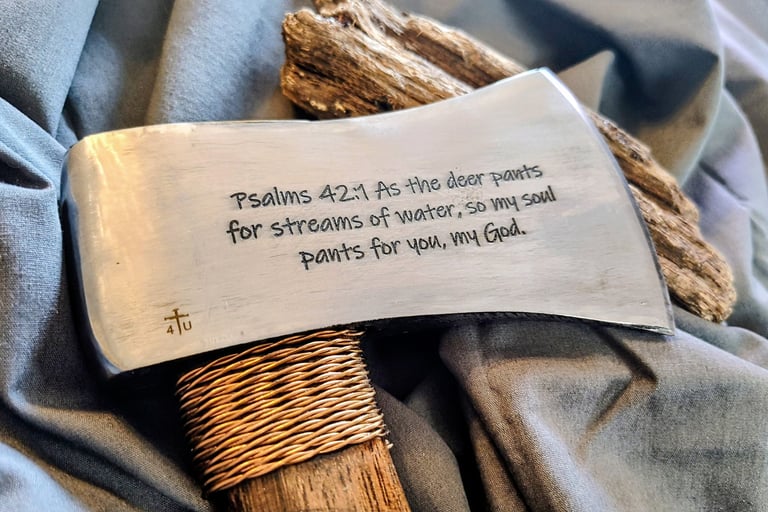 Psalms 42:1 As the deer pants
for streams of water, so my soul
pants for you, my God.
4 U